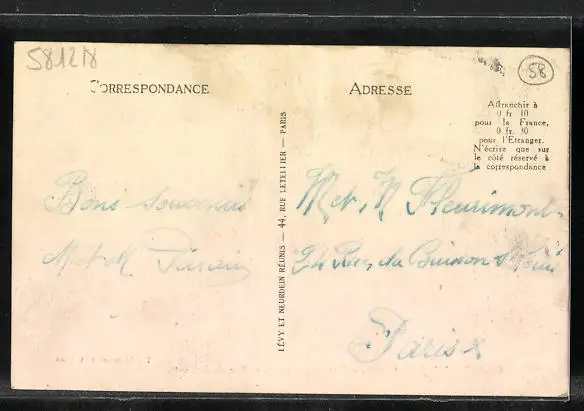 581218
58
CORRESPONDANCE
ADRESSE
Affranchir à
0 fr 10
pour la France,
0 fr. 30
pour l'Etranger.
N'écrire que sur
le côté réservé à
la correspondance
LÉVY ET NEURDEIN RÉUNIS — 44, RUE LETELLIER — PARIS
Bons Souvenirs
M et M
M et M Fleurimont
24 Rue du Buisson St Louis
Paris x